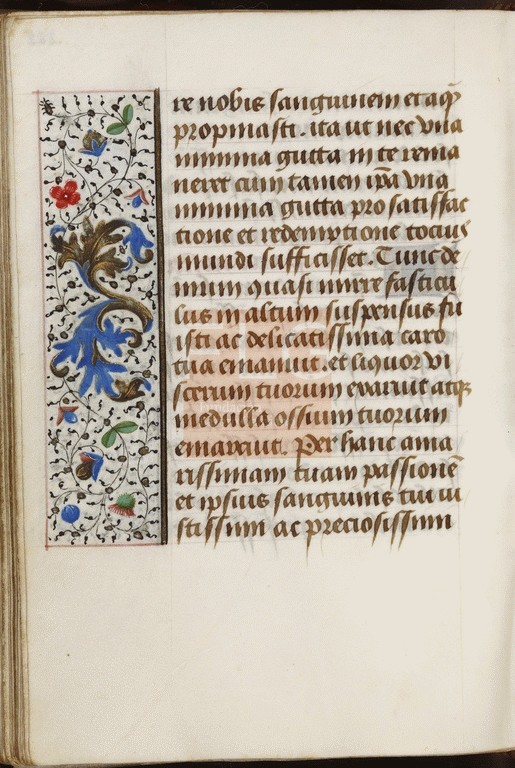 re nobis sanguinem et aq̄
propinasti. ita ut nec vna
minima gutta in te rema
neret cum tamen ip̄a vna
minima gutta pro satisfac
tione et redemptione tocius
mundi suffecisset. Tunc de
mum quasi mirre fascicu
lus in altum suspensus fu
isti ac delicatissima caro
tua emanuit. et liquor vi
scerum tuorum exaruit atq̄
medulla ossium tuorum
emarcuit. Per hanc ama
rissimam tuam passionē
et ipsius sanguinis tui iu
stissim ac preciosissim